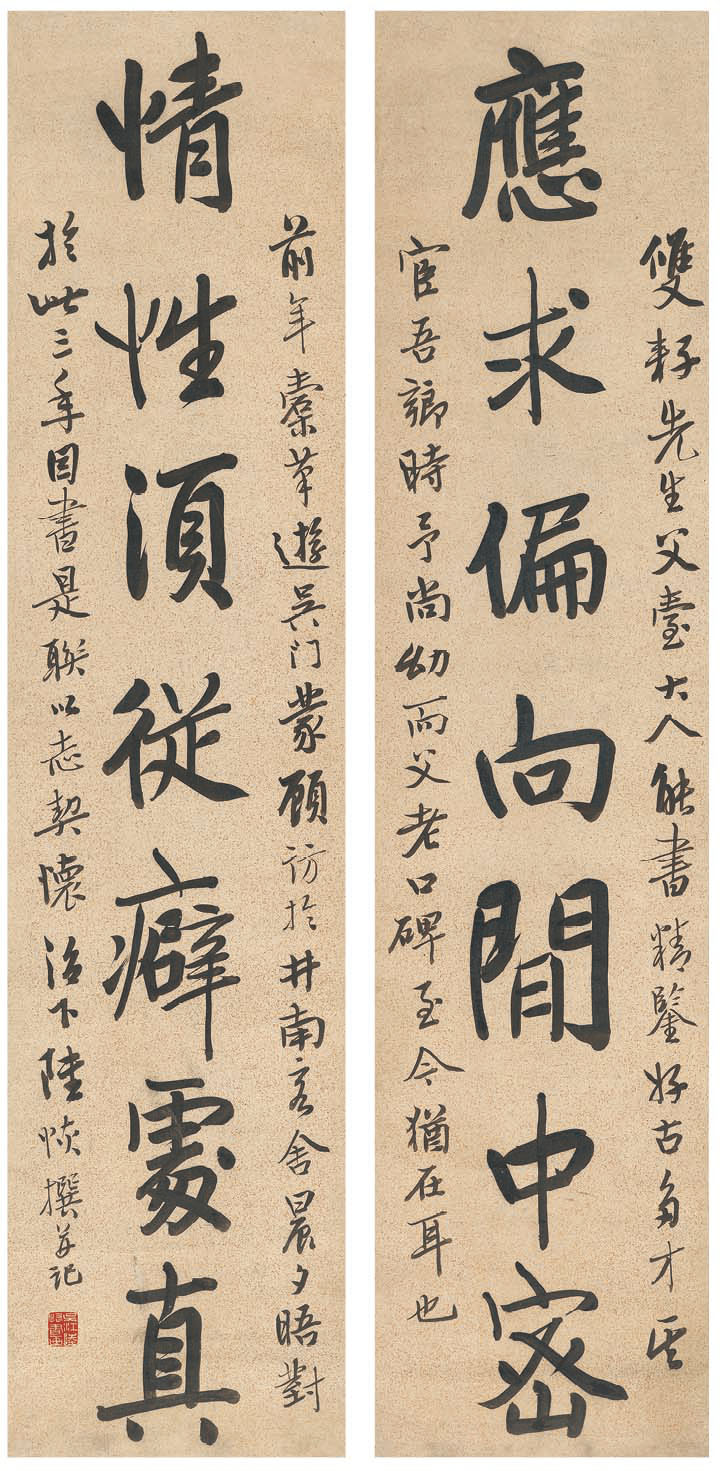 雙耔先生父臺大人能書精鑒好古多才其
應求偏向閒中密
宦吾鄉時予尚幼而父老口碑至今猶在耳也
前年橐筆遊吳門蒙顧訪於井南客舍晨夕晤對
情性須從癖處真
於此三年因書是聯以志契懷治下陸恢撰并記